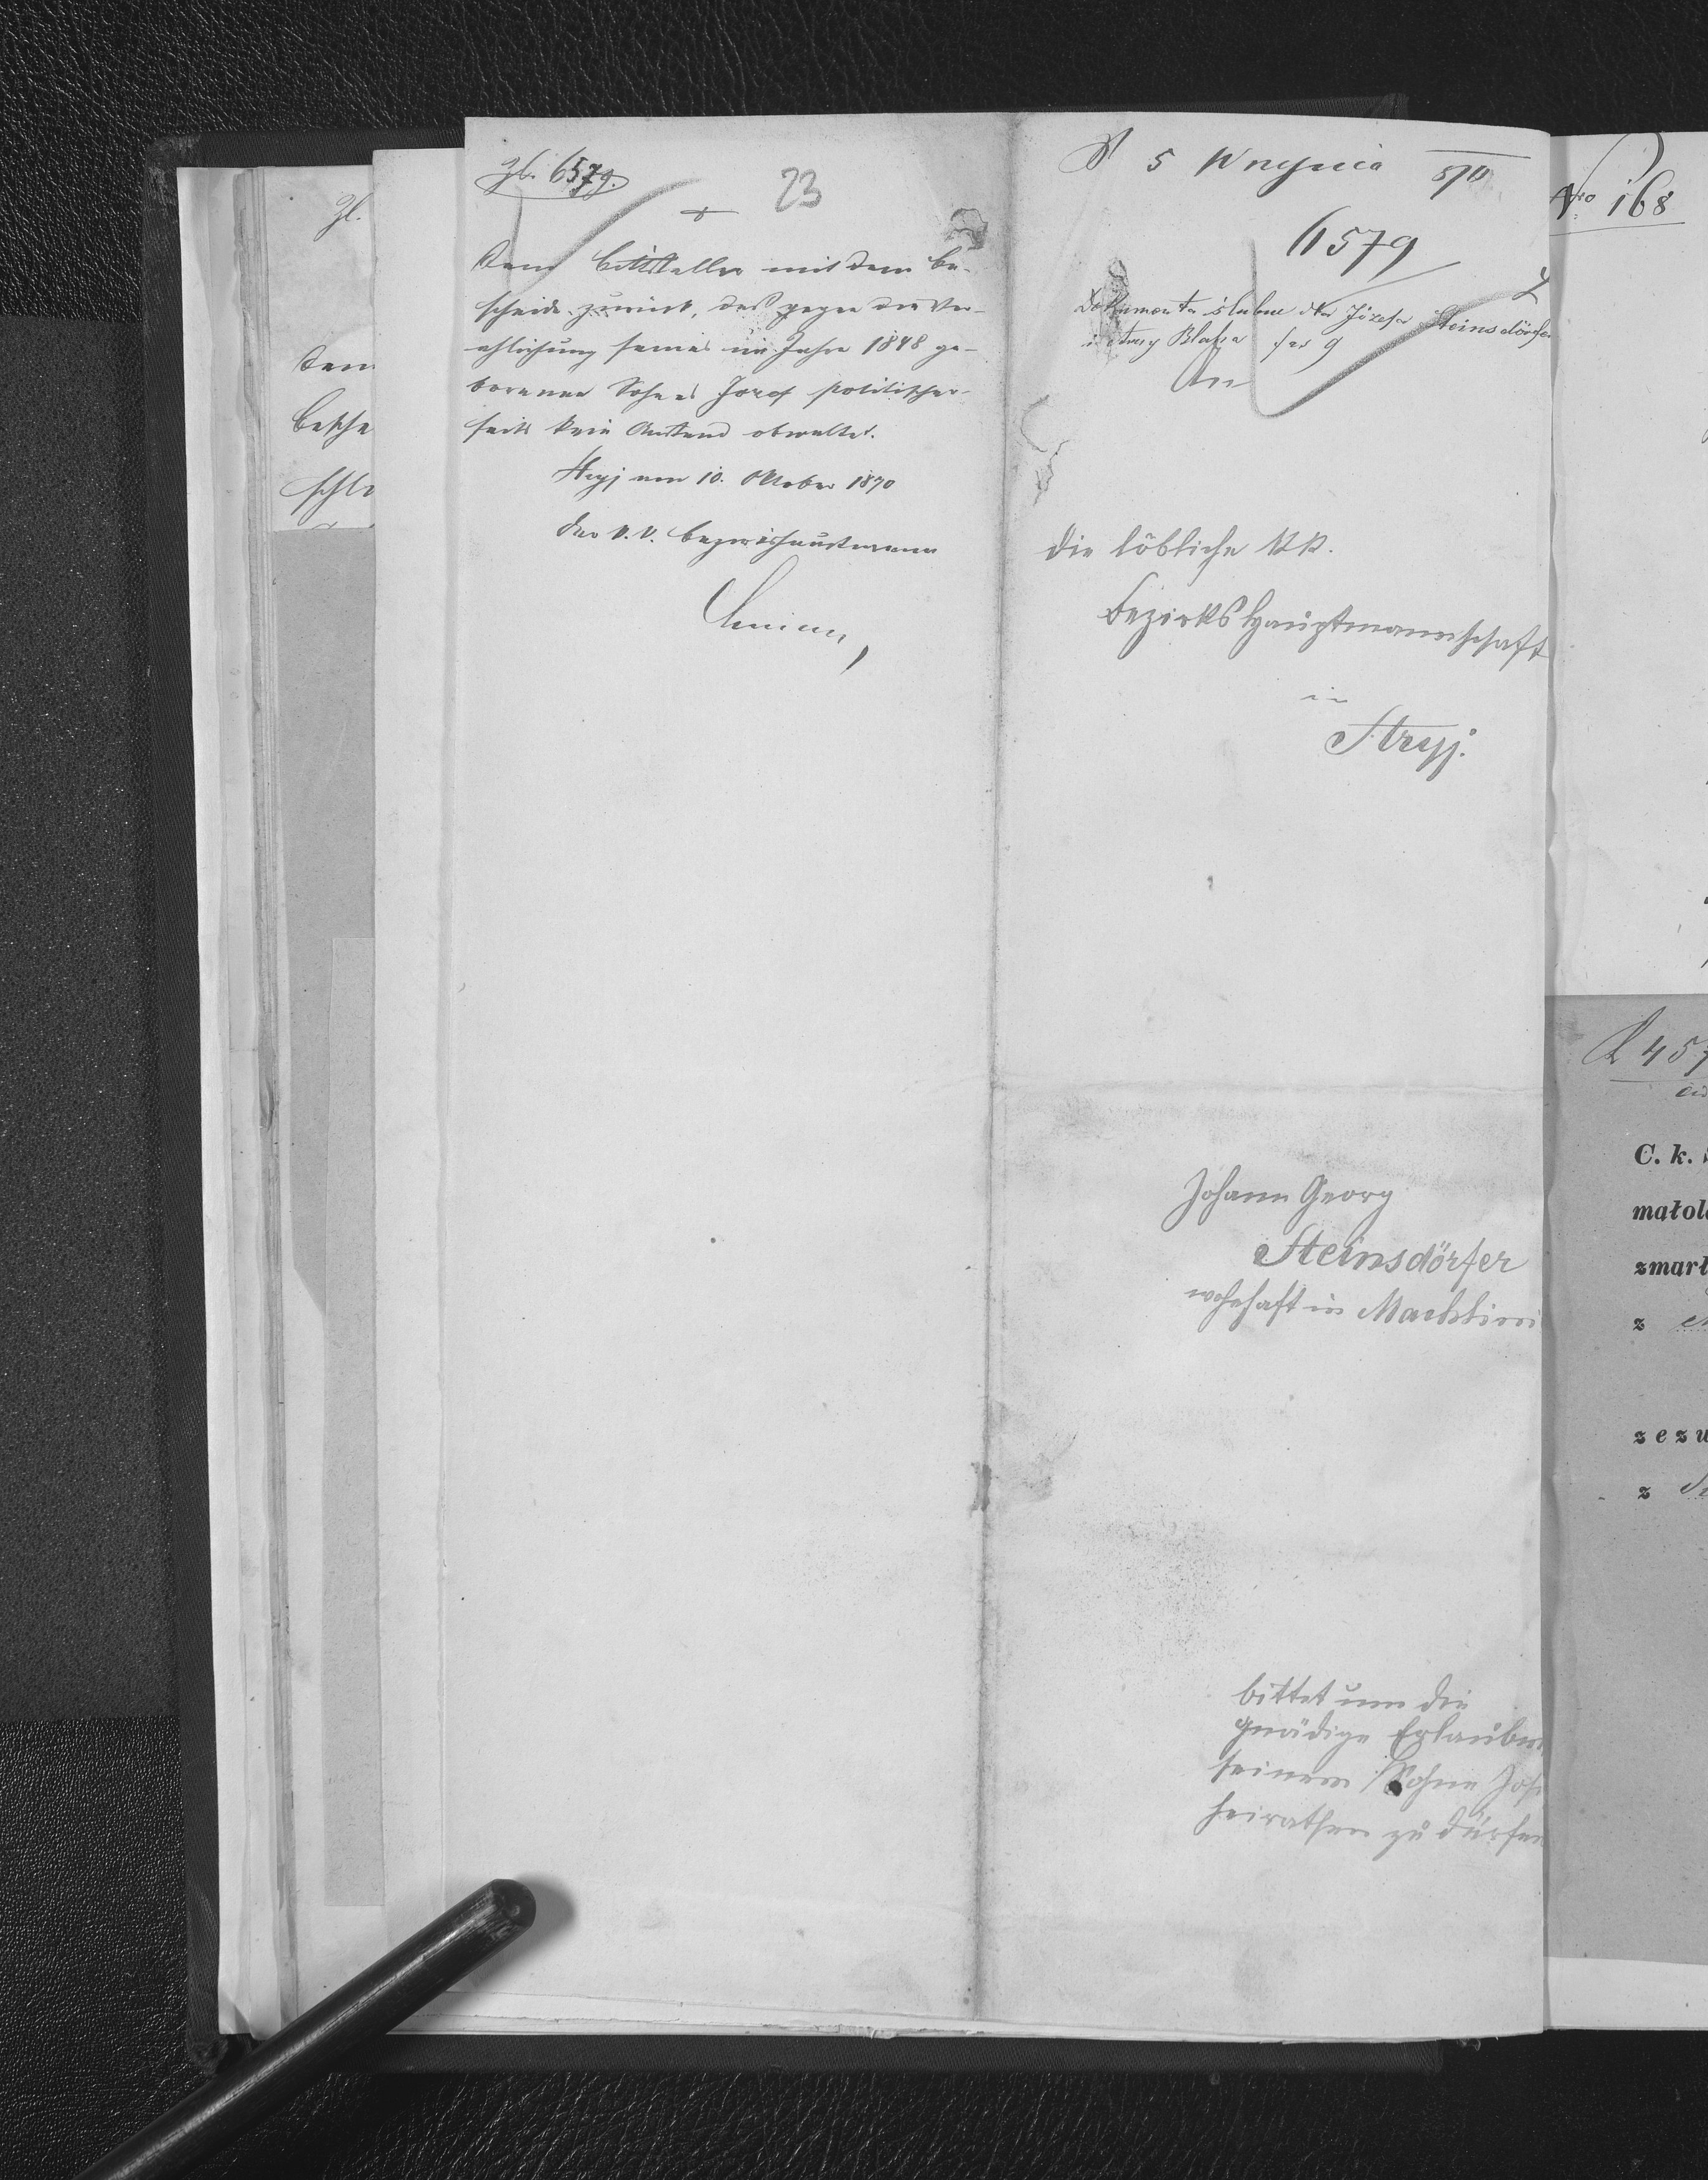 Zl. 6579.
23
Dem Bittsteller mit dem Be-
scheide zurück, daß gegen die Ver-
ehlichung seines im Jahre 1848 ge-
borenen Sohnes Josef politischer-
seits kein Anstand obwaltet.
Stryj am 10. Oktober 1870
Der k.k. Bezirkshauptmann
5 Września 870
6579
Dokumenta ślubne dla Józefa Steinsdörfer
An
die löbliche k.k.
Bezirks Hauptmannschaft
in
Stryj.
Johann Georg
Steinsdörfer
wohnhaft in
bittet um die
gnädige Erlaubn
seinem Sohne Jos
heirathen zu dürfen
Nro 168
Zl.
Dem
Besche
C. k.
małol
zmarł
z
zezw
z